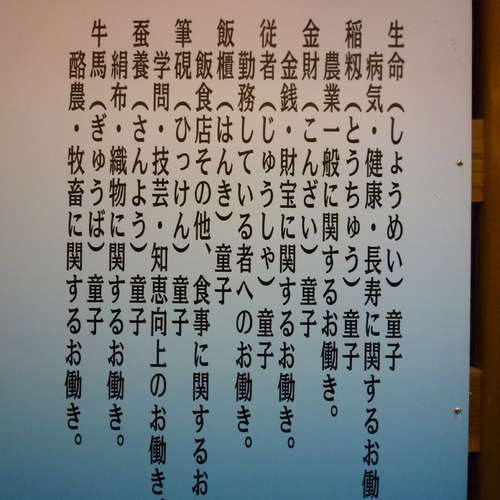 生命(しょうめい)童子
病気・健康・長寿に関するお働
稲籾(とうちゅう)童子
農業一般に関するお働き。
金財(こんざい)童子
金銭・財宝に関するお働き。
従者(じゅうしゃ)童子
勤務している者へのお働き。
飯櫃(はんき)童子
飯食店その他、食事に関するお
筆硯(ひっけん)童子
学問・技芸・知恵向上のお働き
蚕養(さんよう)童子
絹布・織物に関するお働き。
牛馬(ぎゅうば)童子
酪農・牧畜に関するお働き。